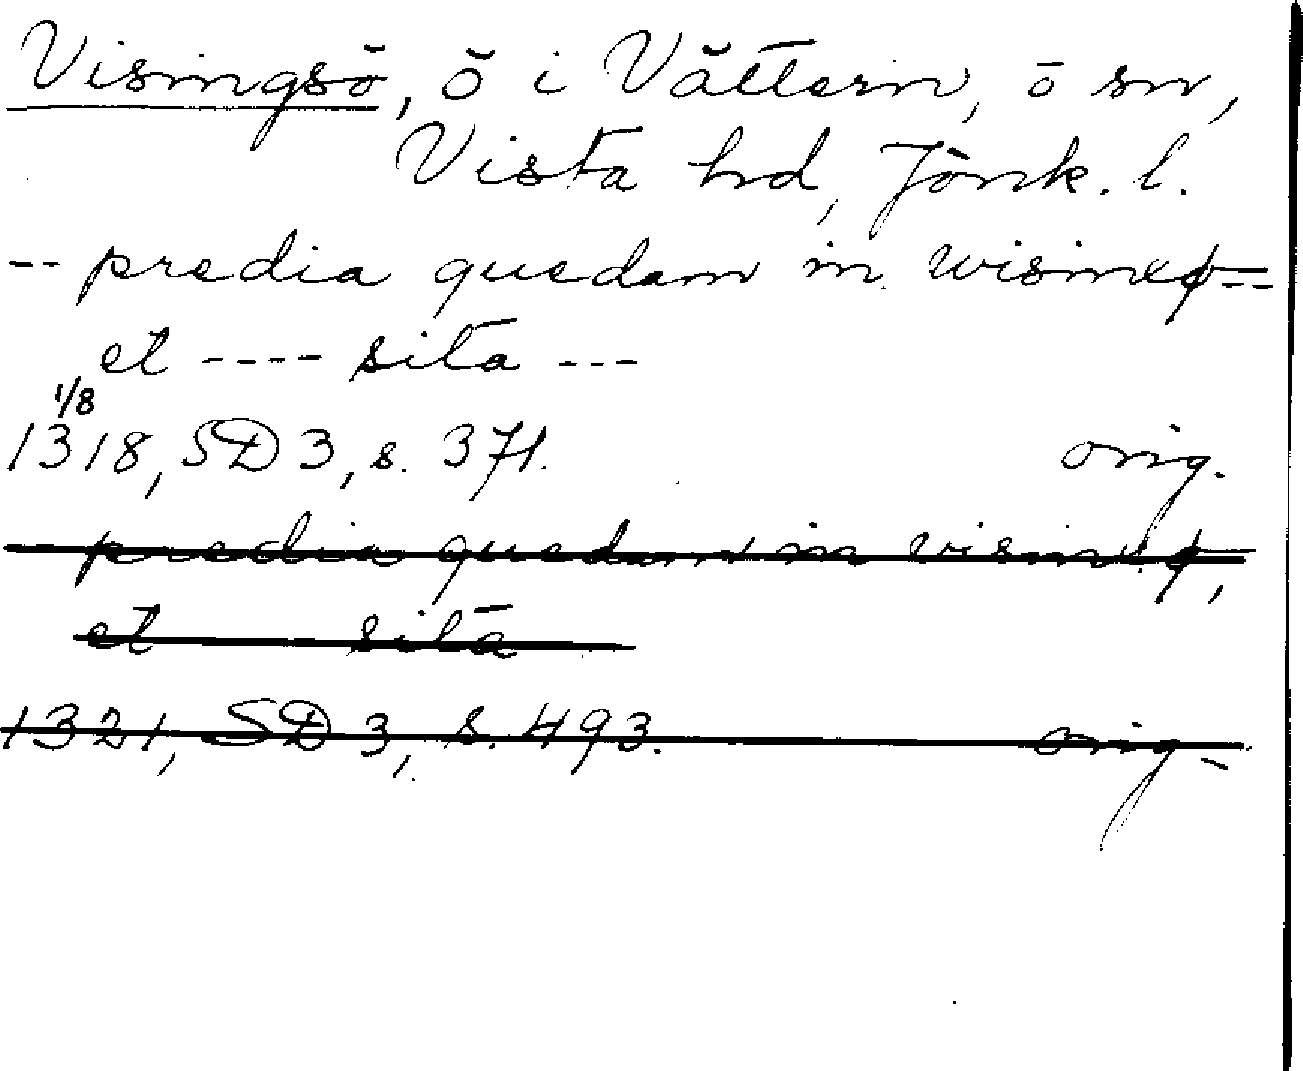 Visingsö, ö i Vättern, ö sn,
Vista hd, Jönk. l.
-- predia quedam in wisinxø --
et ---- sita ---
1/8
1318, SD 3, s. 371. orig.
predia quedam in ,
et sita
1321, SD 3, s. 493. orig.